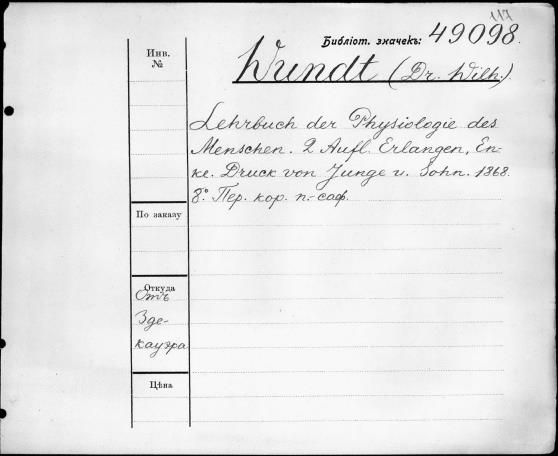 117
Библіот. значекъ: 49098.
Инв.
№
Wundt (Dr. Wilh.)
Lehrbuch der Physiologie des
Menschen. 2 Aufl. Erlangen, En-
ke. Druck von Junge u. Sohn. 1868.
8° Пер. кор. п.-саф.
По заказу
Откуда
Отъ
Зде-
кауэра
Цѣна